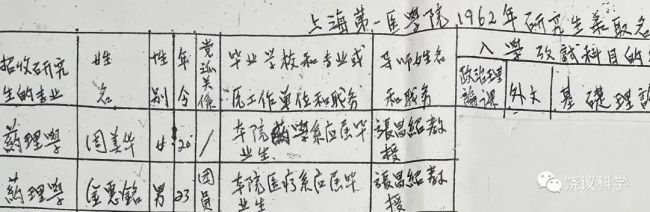 上海第一医学院1962年研究生录取名
招收研究生的专业
姓名
性别
年令
党派关系
毕业学校和专业或原工作单位和职务
导师姓名和职务
入学考试科目的
政治理論课
外文
基礎理
药理学
周美华
女
20
/
本院药学系应届毕业生
張昌紹教授
药理学
金惠銘
男
23
团員
本院医疗系应届毕业生
張昌紹教授
饶议科学